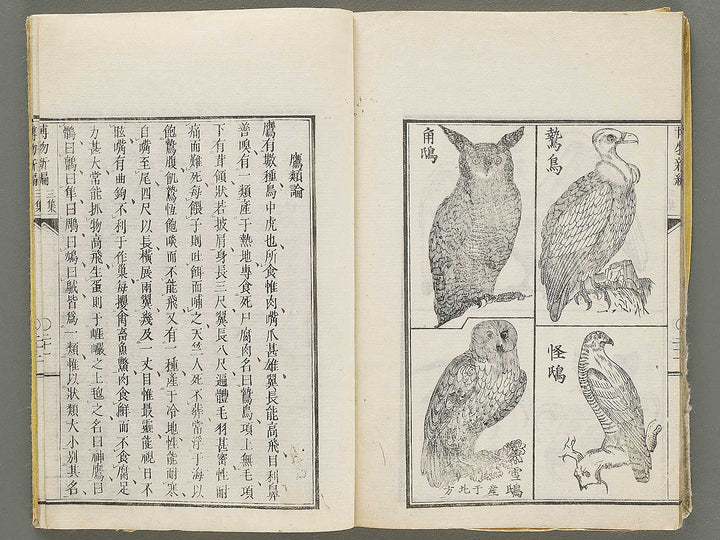 鷙鳥
角鴟
怪鴟
雪鴟
產于北方
鷹類論
鷹有數種鳥中虎也所食惟肉嘴爪甚雄翼長能高飛目利鼻
善嗅有一類產于熱地專食死尸腐肉名曰鷙鳥項上無毛項
下有茸領狀若披肩身長三尺翼長八尺遍體毛羽甚密性耐
痛而難死每餵子則吐餌而哺之天竺人死不葬常浮于海以
飽鷙腹飢鷙恆飽啖而不能飛又有一種產于冷地性能耐寒
自嘴至尾四尺以長橫展兩翼幾及一丈目惟最靈能視日不
眩嘴有曲鉤不利于作巢每攫禽畜魚鱉肉食鮮而不食腐足
力甚大常能抓物高飛生蛋則于巘之上之名曰神鷹曰
鶻曰鸇曰隼曰鵰曰曰皆爲一類惟以狀類大小別其名
博物新編 三集